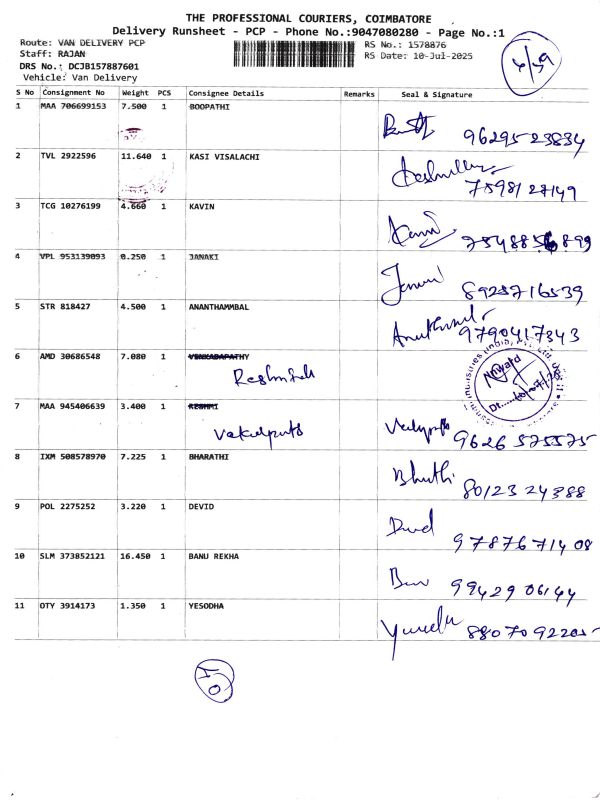 THE PROFESSIONAL COURIERS, COIMBATORE
Delivery Runsheet - PCP - Phone No.:9047080280 - Page No.:1
Route: VAN DELIVERY PCP
Staff: RAJAN
DRS No.: DCJB157887601
Vehicle: Van Delivery
RS No.: 1578876
RS Date: 10-Jul-2025
S No Consignment No Weight PCS Consignee Details Remarks Seal & Signature
1 MAA 706699153 7.500 1 BOOPATHI
96295 23834
2 TVL 2922596 11.640 1 KASI VISALACHI
7598127149
3 TCG 10276199 4.660 1 KAVIN
4 VPL 953139093 0.250 1 JANAKI
8925716539
5 STR 818427 4.500 1 ANANTHAMMBAL
9790417343
6 AMD 30686548 7.080 1 VENKADAPATHY
Inward
7 MAA 945406639 3.400 1 RESHMI
9626 575575
8 IXM 508578970 7.225 1 BHARATHI
80123 24388
9 POL 2275252 3.220 1 DEVID
97876 71408
10 SLM 373852121 16.450 1 BANU REKHA
99429 06144
11 OTY 3914173 1.350 1 YESODHA
88070 92205